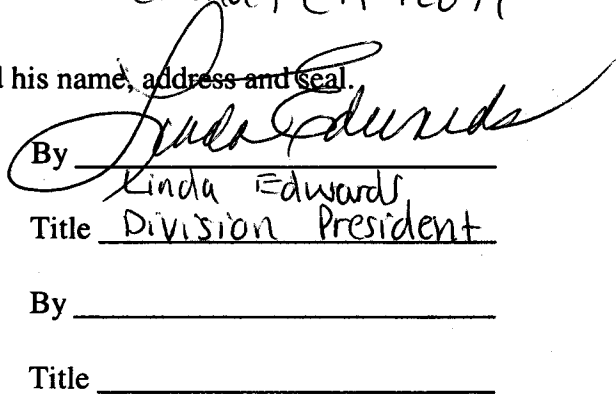 his name, address and seal.
By Linda Edwards
Linda Edwards
Title Division President
By
Title